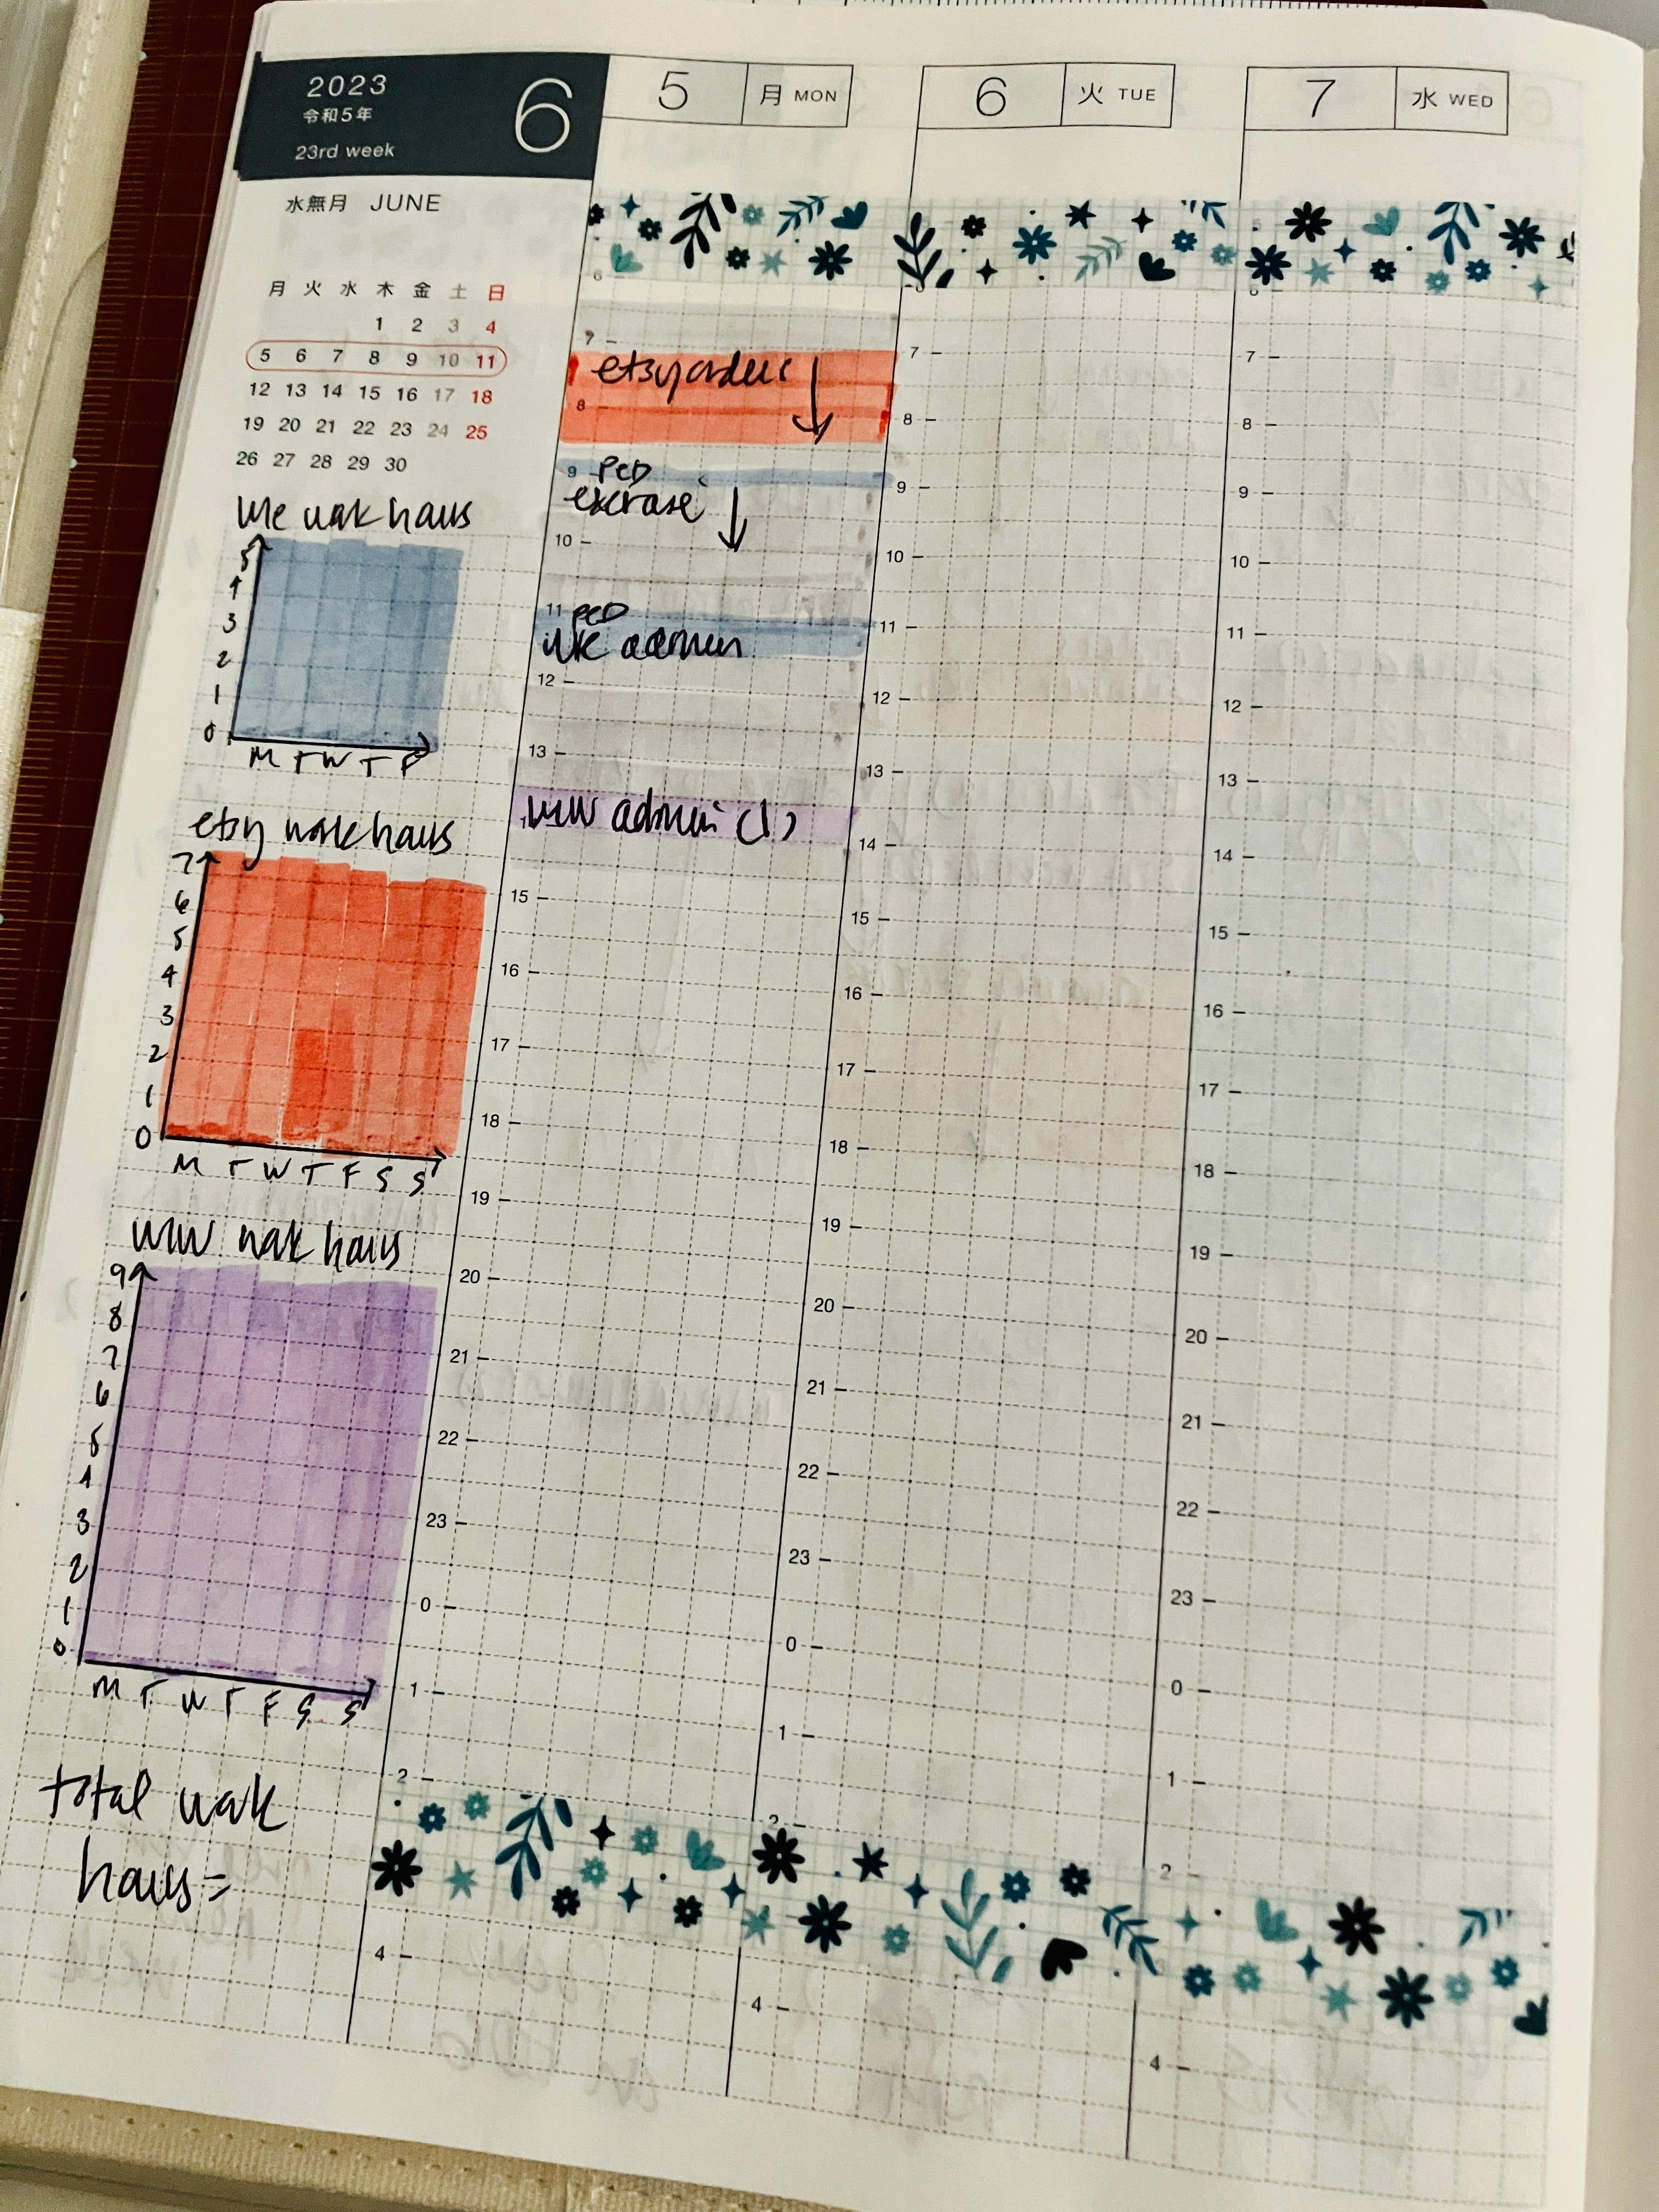 2023
令和5年
23rd week
6
水無月 JUNE
月 火 水 木 金 土 日
1 2 3 4
5 6 7 8 9 10 11
12 13 14 15 16 17 18
19 20 21 22 23 24 25
26 27 28 29 30
work hours
5
4
3
2
1
0
M T W T F
etsy work hours
7
6
5
4
3
2
1
0
M T W T F S S
MW work hours
9
8
7
6
5
4
3
2
1
0
M T W T F S S
total work
hours =
5 月 MON
6
7
etsy orders
8
9 PCD
exercise
10
11 PCD
admin
12
13
MW admin (1)
15
16
17
18
19
20
21
22
23
0
1
2
4
6 火 TUE
6
7
8
9
10
11
12
13
14
15
16
17
18
19
20
21
22
23
0
1
2
4
7 水 WED
6
7
8
9
10
11
12
13
14
15
16
17
18
19
20
21
22
23
0
1
2
4